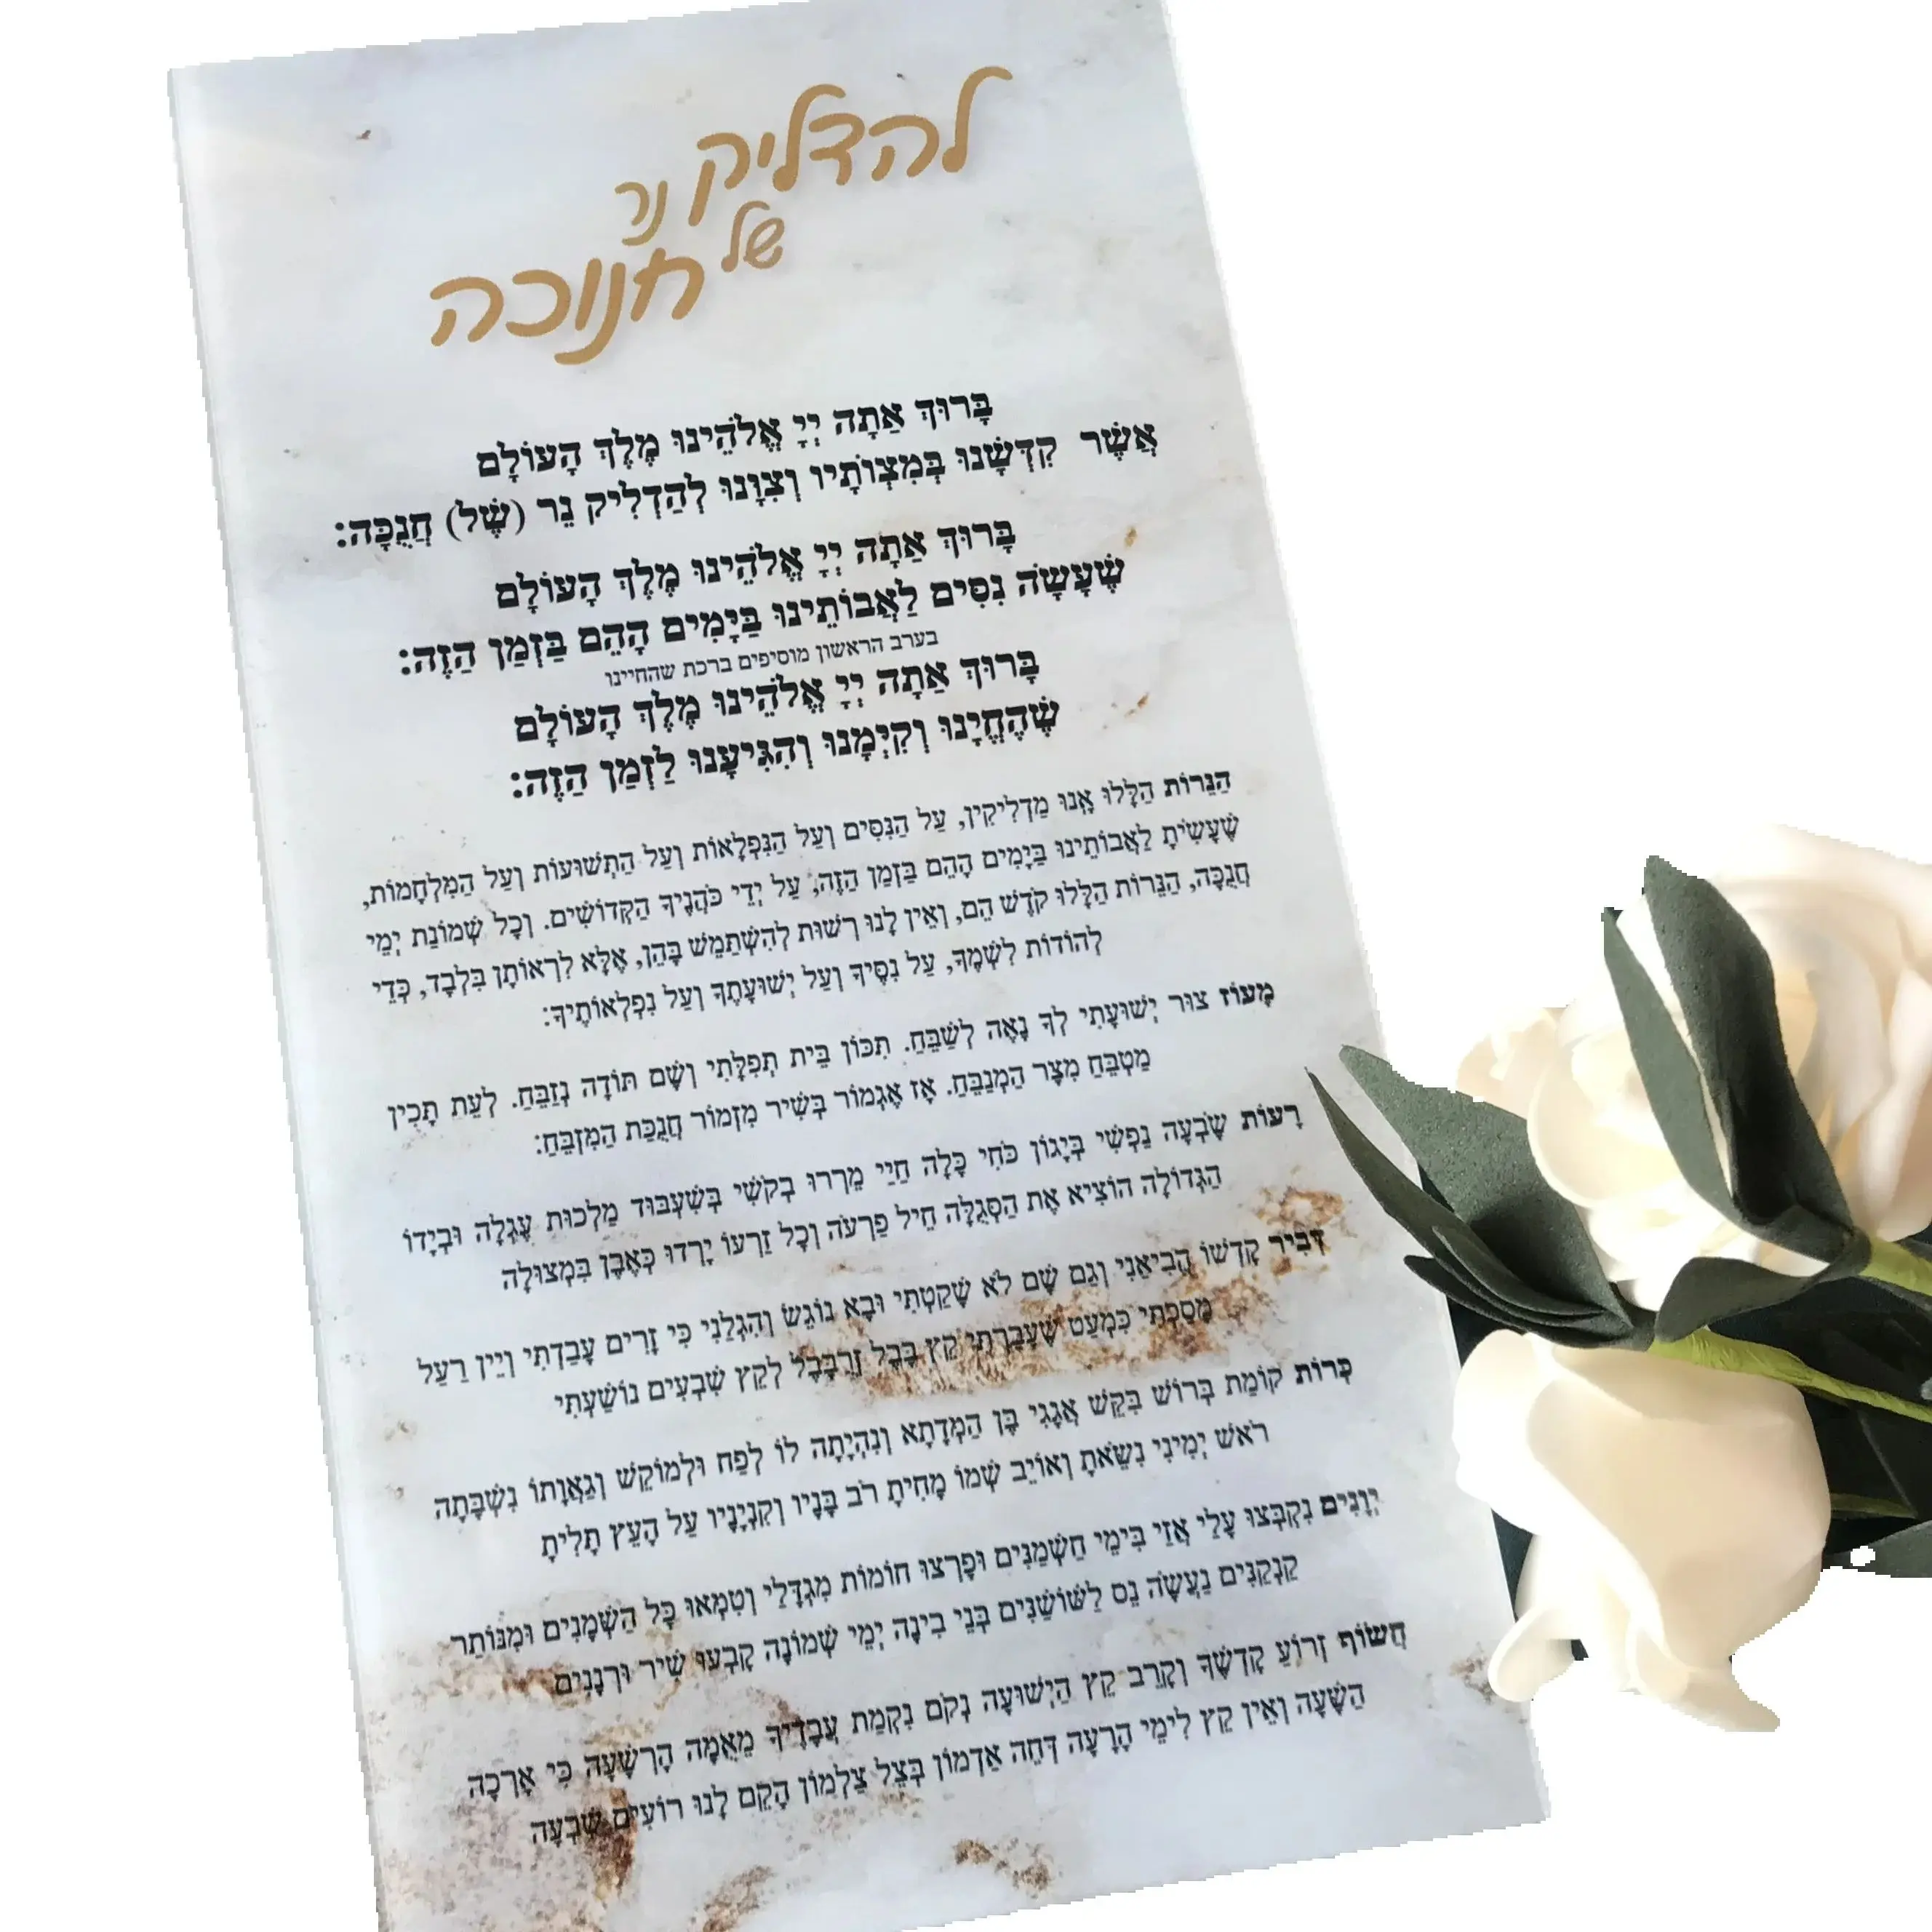 להדליק נר
של
חנוכה
בָּרוּךְ אַתָּה יְיָ אֱלֹהֵינוּ מֶלֶךְ הָעוֹלָם
אֲשֶׁר קִדְּשָׁנוּ בְּמִצְוֹתָיו וְצִוָּנוּ לְהַדְלִיק נֵר (שֶׁל) חֲנֻכָּה:
בָּרוּךְ אַתָּה יְיָ אֱלֹהֵינוּ מֶלֶךְ הָעוֹלָם
שֶׁעָשָׂה נִסִּים לַאֲבוֹתֵינוּ בַּיָּמִים הָהֵם בַּזְּמַן הַזֶּה:
בערב הראשון מוסיפים ברכת שהחיינו
בָּרוּךְ אַתָּה יְיָ אֱלֹהֵינוּ מֶלֶךְ הָעוֹלָם
שֶׁהֶחֱיָנוּ וְקִיְּמָנוּ וְהִגִּיעָנוּ לַזְּמַן הַזֶּה:
הַנֵּרוֹת הַלָּלוּ אָנוּ מַדְלִיקִין, עַל הַנִּסִּים וְעַל הַנִּפְלָאוֹת וְעַל הַתְּשׁוּעוֹת וְעַל הַמִּלְחָמוֹת,
שֶׁעָשִׂיתָ לַאֲבוֹתֵינוּ בַּיָּמִים הָהֵם בַּזְּמַן הַזֶּה, עַל יְדֵי כֹּהֲנֶיךָ הַקְּדוֹשִׁים. וְכָל שְׁמוֹנַת יְמֵי
חֲנֻכָּה, הַנֵּרוֹת הַלָּלוּ קֹדֶשׁ הֵם, וְאֵין לָנוּ רְשׁוּת לְהִשְׁתַּמֵּשׁ בָּהֵן, אֶלָּא לִרְאוֹתָן בִּלְבָד, כְּדֵי
לְהוֹדוֹת לִשְׁמֶךָ, עַל נִסֶּיךָ וְעַל יְשׁוּעָתֶךָ וְעַל נִפְלְאוֹתֶיךָ:
מָעוֹז צוּר יְשׁוּעָתִי לְךָ נָאֶה לְשַׁבֵּחַ. תִּכּוֹן בֵּית תְּפִלָּתִי וְשָׁם תּוֹדָה נְזַבֵּחַ. לְעֵת תָּכִין
מַטְבֵּחַ מִצָּר הַמְנַבֵּחַ. אָז אֶגְמוֹר בְּשִׁיר מִזְמוֹר חֲנֻכַּת הַמִּזְבֵּחַ:
רָעוֹת שָׂבְעָה נַפְשִׁי בְּיָגוֹן כֹּחִי כָּלָה חַיַּי מֵרְרוּ בְקֹשִׁי בְּשִׁעְבּוּד מַלְכוּת עֶגְלָה וּבְיָדוֹ
הַגְּדוֹלָה הוֹצִיא אֶת הַסְּגֻלָּה חֵיל פַּרְעֹה וְכָל זַרְעוֹ יָרְדוּ כְּאֶבֶן בִּמְצוּלָה
דְּבִיר קָדְשׁוֹ הֱבִיאַנִי וְגַם שָׁם לֹא שָׁקַטְתִּי וּבָא נוֹגֵשׂ וְהִגְלַנִי כִּי זָרִים עָבַדְתִּי וְיֵין רַעַל
מָסַכְתִּי כִּמְעַט שֶׁעָבַרְתִּי קֵץ בָּבֶל זְרֻבָּבֶל לְקֵץ שִׁבְעִים נוֹשַׁעְתִּי
כְּרוֹת קוֹמַת בְּרוֹשׁ בִּקֵּשׁ אֲגָגִי בֶּן הַמְּדָתָא וְנִהְיָתָה לוֹ לְפַח וּלְמוֹקֵשׁ וְגַאֲוָתוֹ נִשְׁבָּתָה
רֹאשׁ יְמִינִי נִשֵּׂאתָ וְאוֹיֵב שְׁמוֹ מָחִיתָ רֹב בָּנָיו וְקִנְיָנָיו עַל הָעֵץ תָּלִיתָ
יְוָנִים נִקְבְּצוּ עָלַי אֲזַי בִּימֵי חַשְׁמַנִּים וּפָרְצוּ חוֹמוֹת מִגְדָּלַי וְטִמְּאוּ כָּל הַשְּׁמָנִים וּמִנּוֹתַר
קַנְקַנִּים נַעֲשָׂה נֵס לַשּׁוֹשַׁנִּים בְּנֵי בִינָה יְמֵי שְׁמוֹנָה קָבְעוּ שִׁיר וּרְנָנִים
חֲשׂוֹף זְרוֹעַ קָדְשֶׁךָ וְקָרֵב קֵץ הַיְשׁוּעָה נְקֹם נִקְמַת עֲבָדֶיךָ מֵאֻמָּה הָרְשָׁעָה כִּי אָרְכָה
הַשָּׁעָה וְאֵין קֵץ לִימֵי הָרָעָה דְּחֵה אַדְמוֹן בְּצֵל צַלְמוֹן הָקֵם לָנוּ רוֹעִים שִׁבְעָה